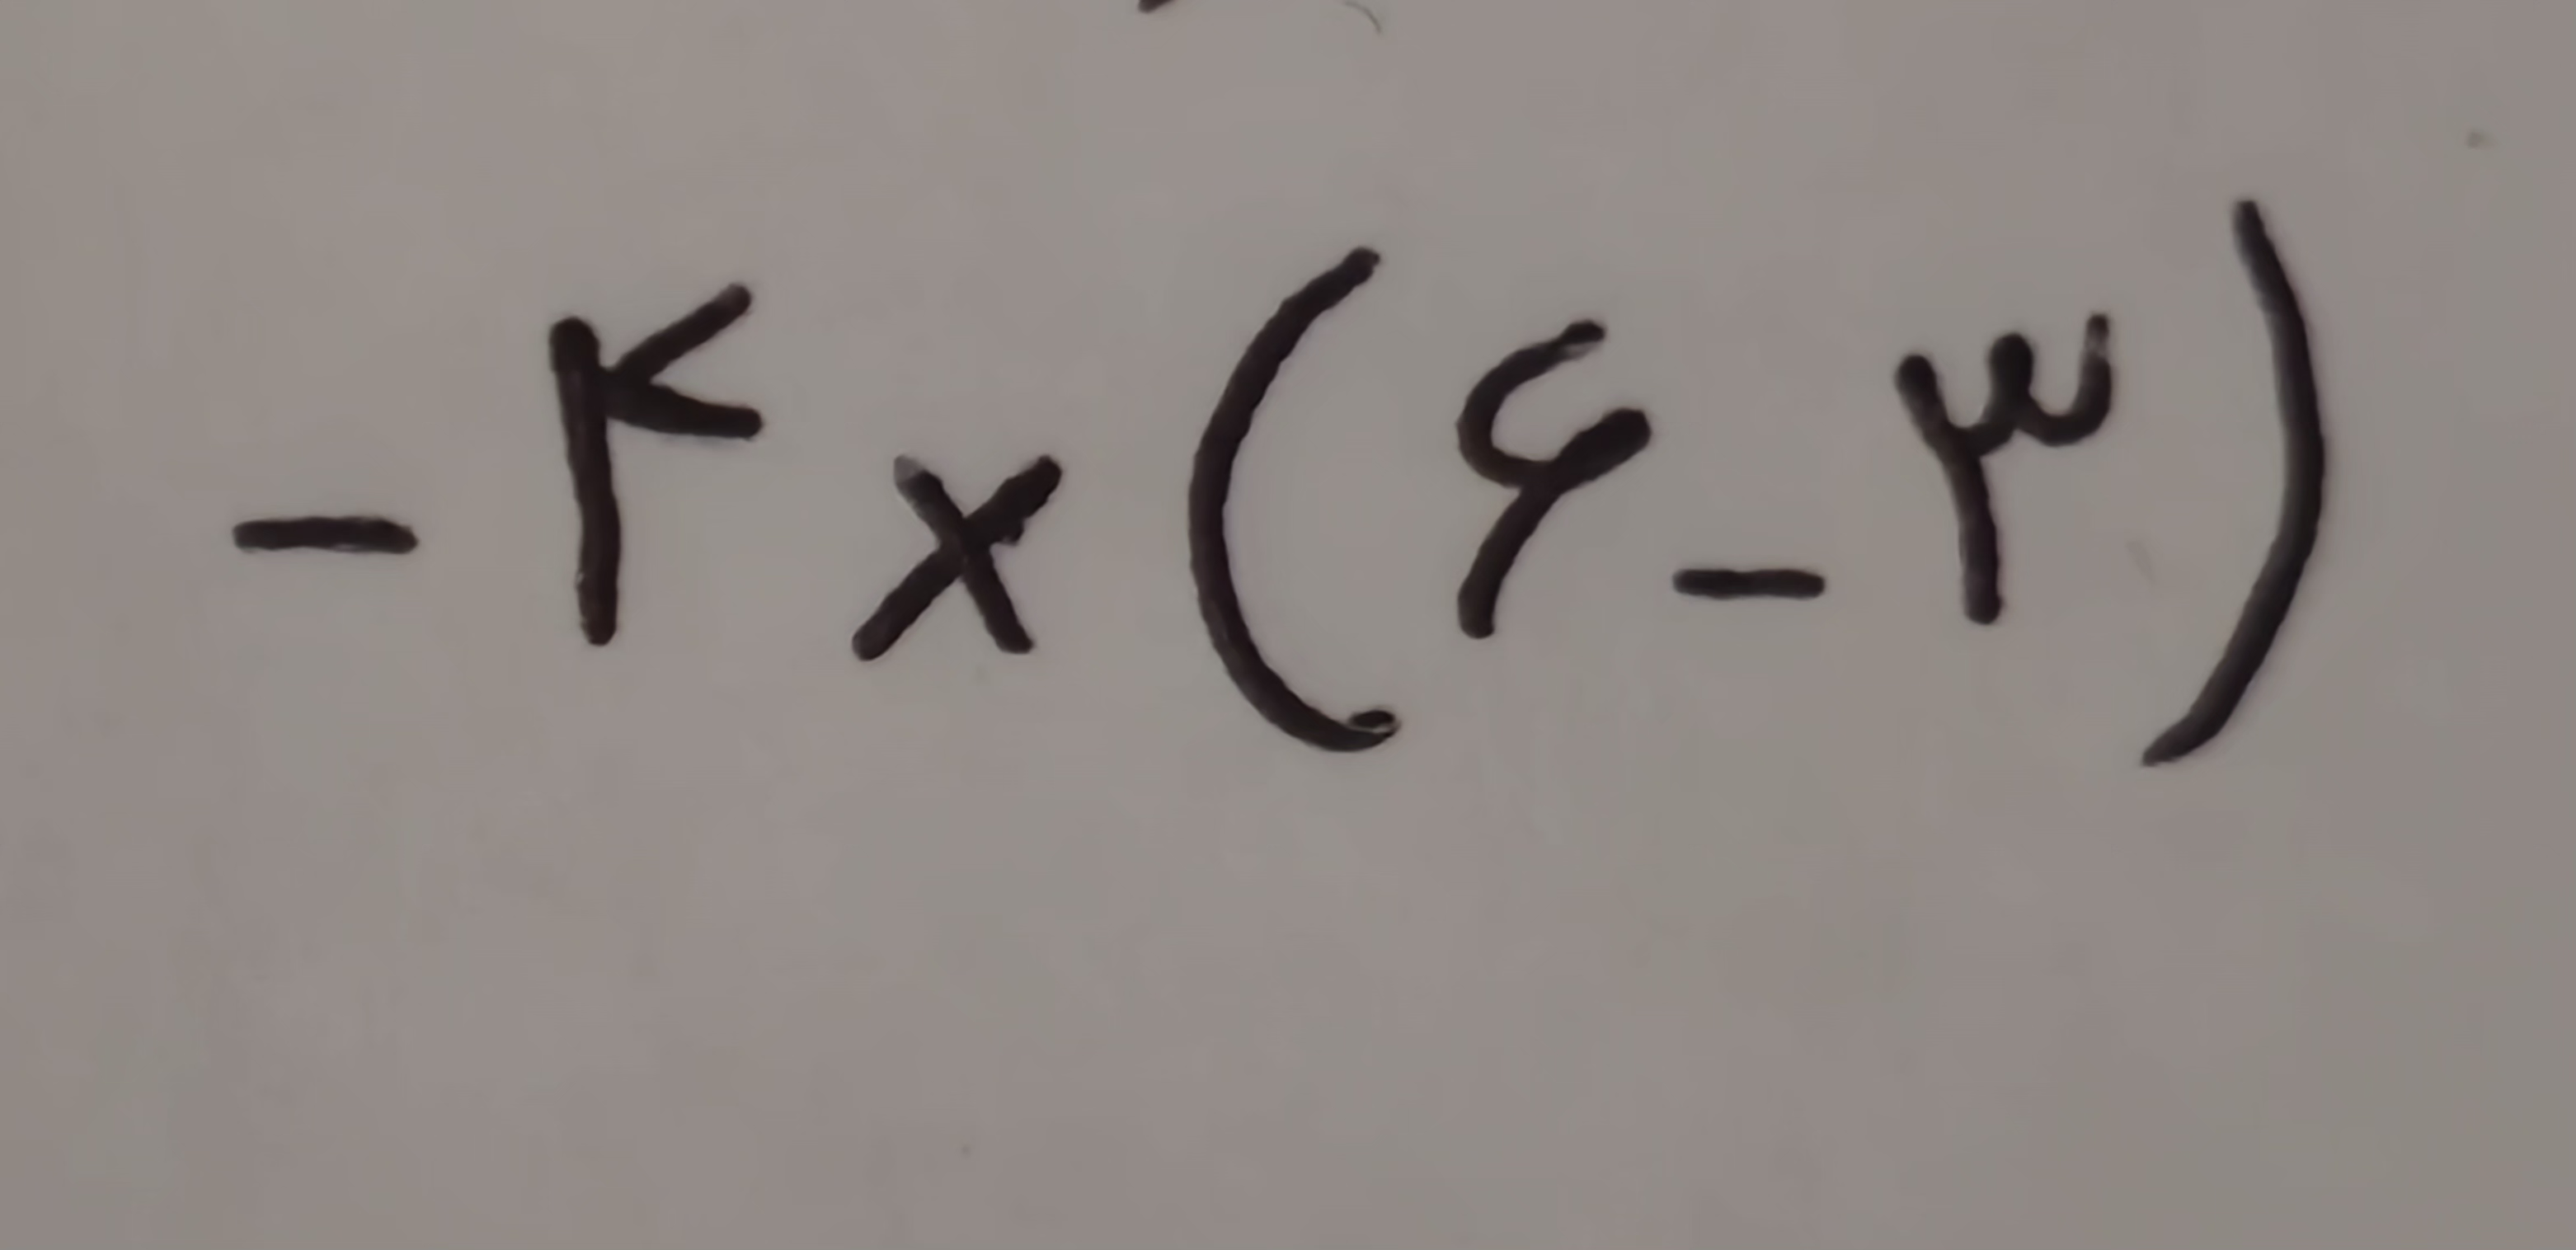 -۴×(۶-۳)